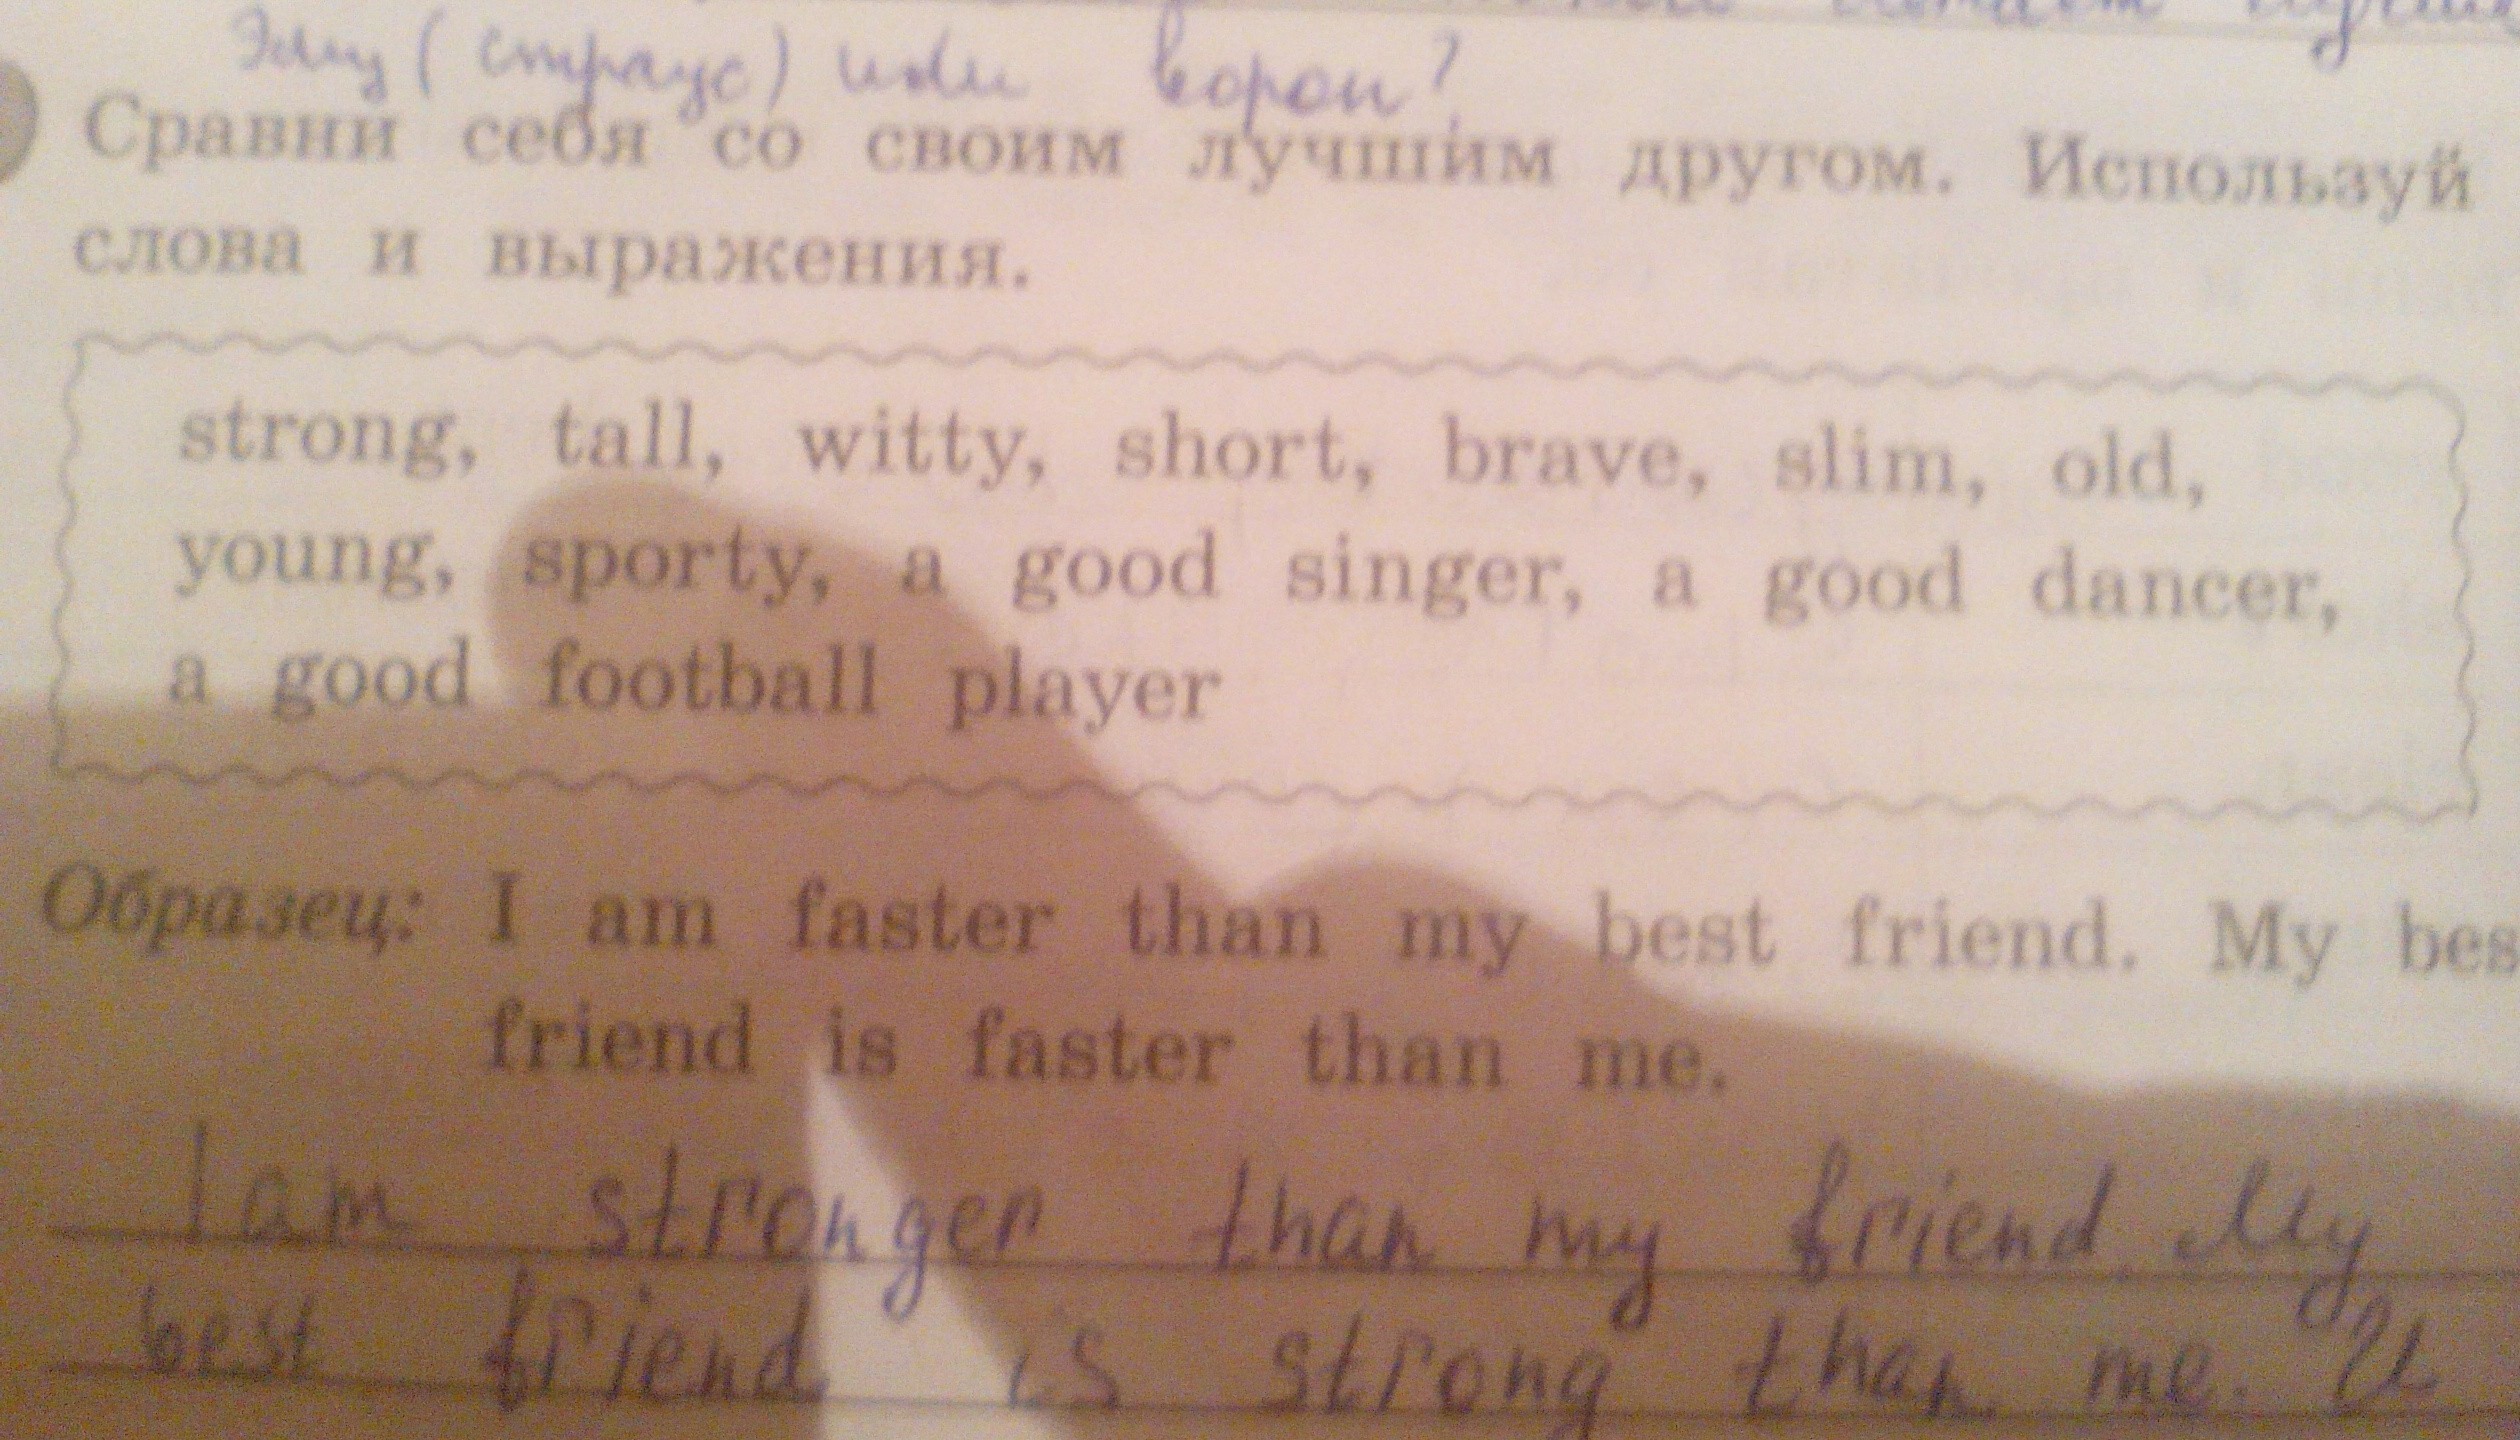 Эму (страус) или ворон?
Сравни себя со своим лучшим другом. Используй
слова и выражения.
strong, tall, witty, short, brave, slim, old,
young, sporty, a good singer, a good dancer,
a good football player
Образец: I am faster than my best friend. My bes
friend is faster than me.
I am stronger than my friend. My
best friend is strong than me.